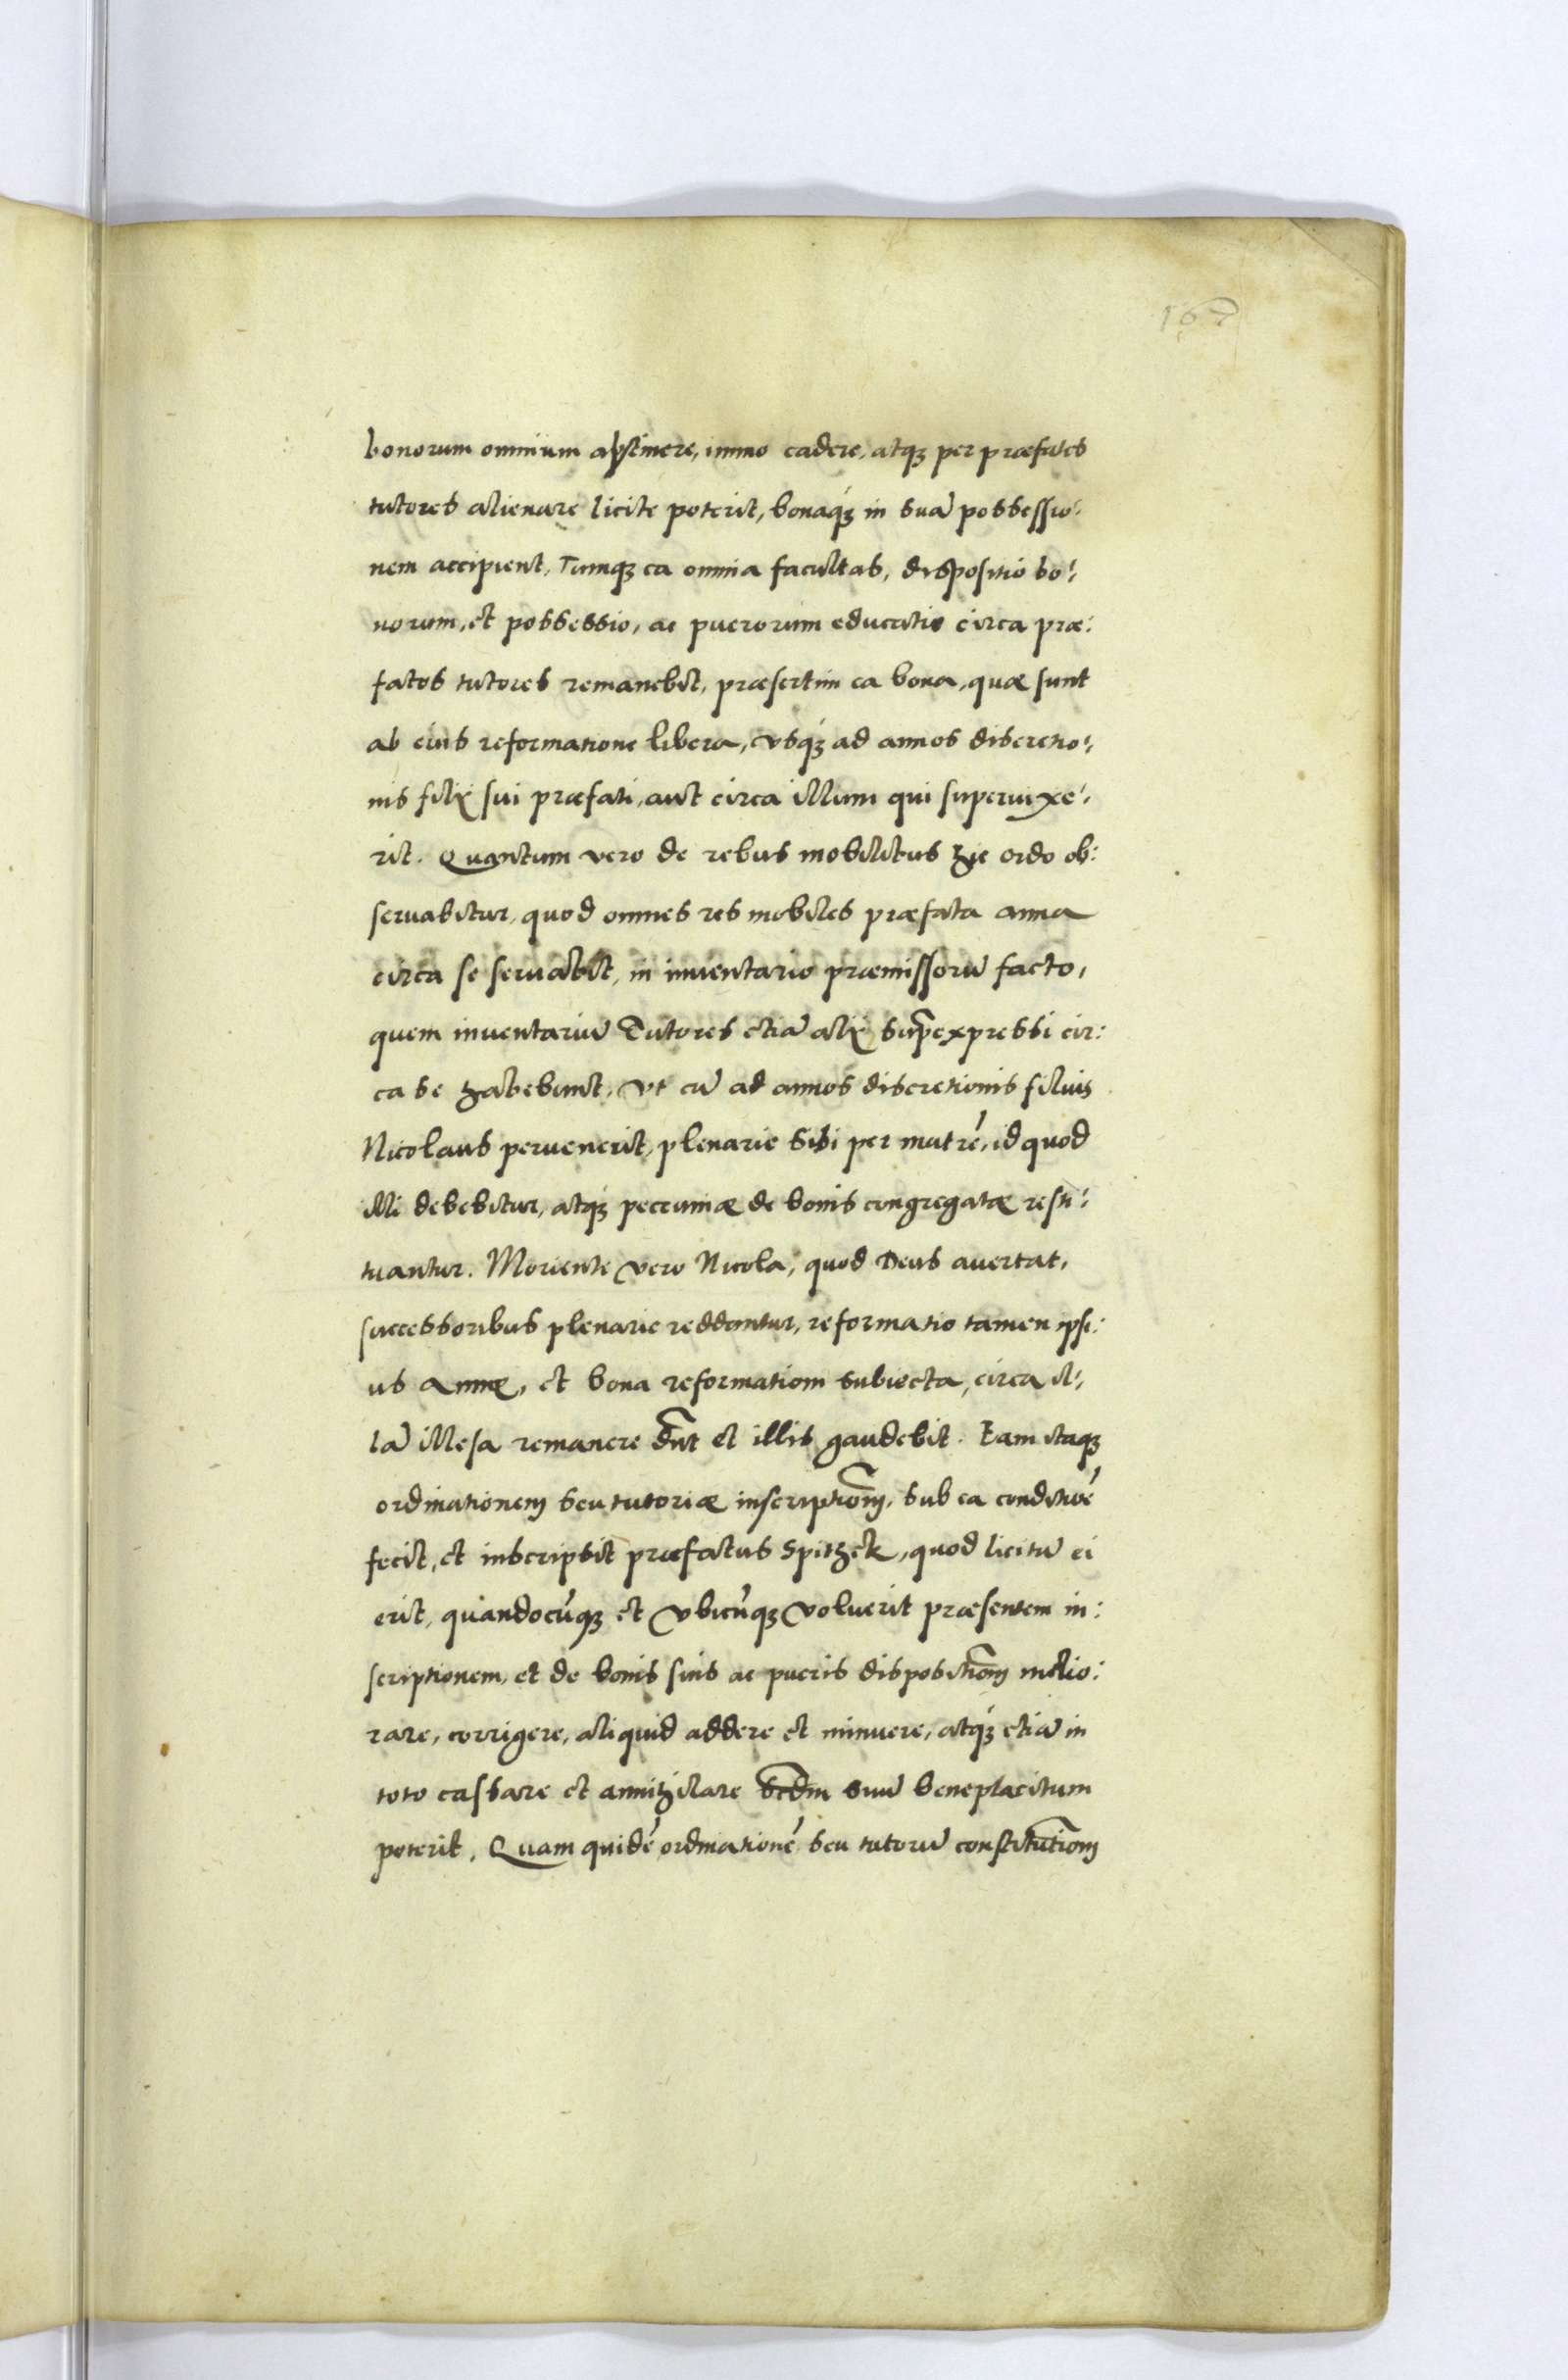 167
bonorum omnium abstinere, immo cadere, atqꝫ per præfatos
tutores alienare licite poterit, bonaqꝫ in suā possessio:
nem accipient, Tumqꝫ ea omnia facultas, dispositio bo:
norum, et possessio, ac puerorum educatio circa præ:
fatos tutores remanebit, præsertim ea bona, quæ sunt
ab eius reformatione libera, vsqꝫ ad annos discretio:
nis filij sui præfati, aut circa illum qui supervixe:
rit. Quantum vero de rebus mobilibus hic ordo ob:
servabitur, quod omnes res mobiles præfata anna
circa se servabit, in inventario præmissorū facto,
quem inventariū Tutores etiā alij supexpressi cir:
ca se habebunt, vt cū ad annos discretionis filius
Nicolaus pervenerit, plenarie sibi per matrē, id quod
illi debebitur, atqꝫ pecuniæ de bonis congregatæ resti:
tuantur. Moriente vero Nicola, quod Deus avertat,
successoribus plenarie reddantur, reformatio tamen ipsi:
us Annæ, et bona reformationi subiecta, circa il:
lā illesa remanere dn̄t et illis gaudebit. Eam itaqꝫ
ordinationem seu tutoriæ inscriptiom̄, sub ea conditioē
fecit, et inscripsit præfatus Spithek, quod licitū ei
erit, quandocūqꝫ et vbicūqꝫ voluerit præsentem in:
scriptionem, et de bonis suis ac pueris dispositiom̄ melio:
rare, corrigere, aliquid addere et minuere, atqꝫ etiā in
toto cassare et annihilare scdm̄ suū beneplacitum
poterit. Quam quidē ordinationē seu tutorū constitutiom̄